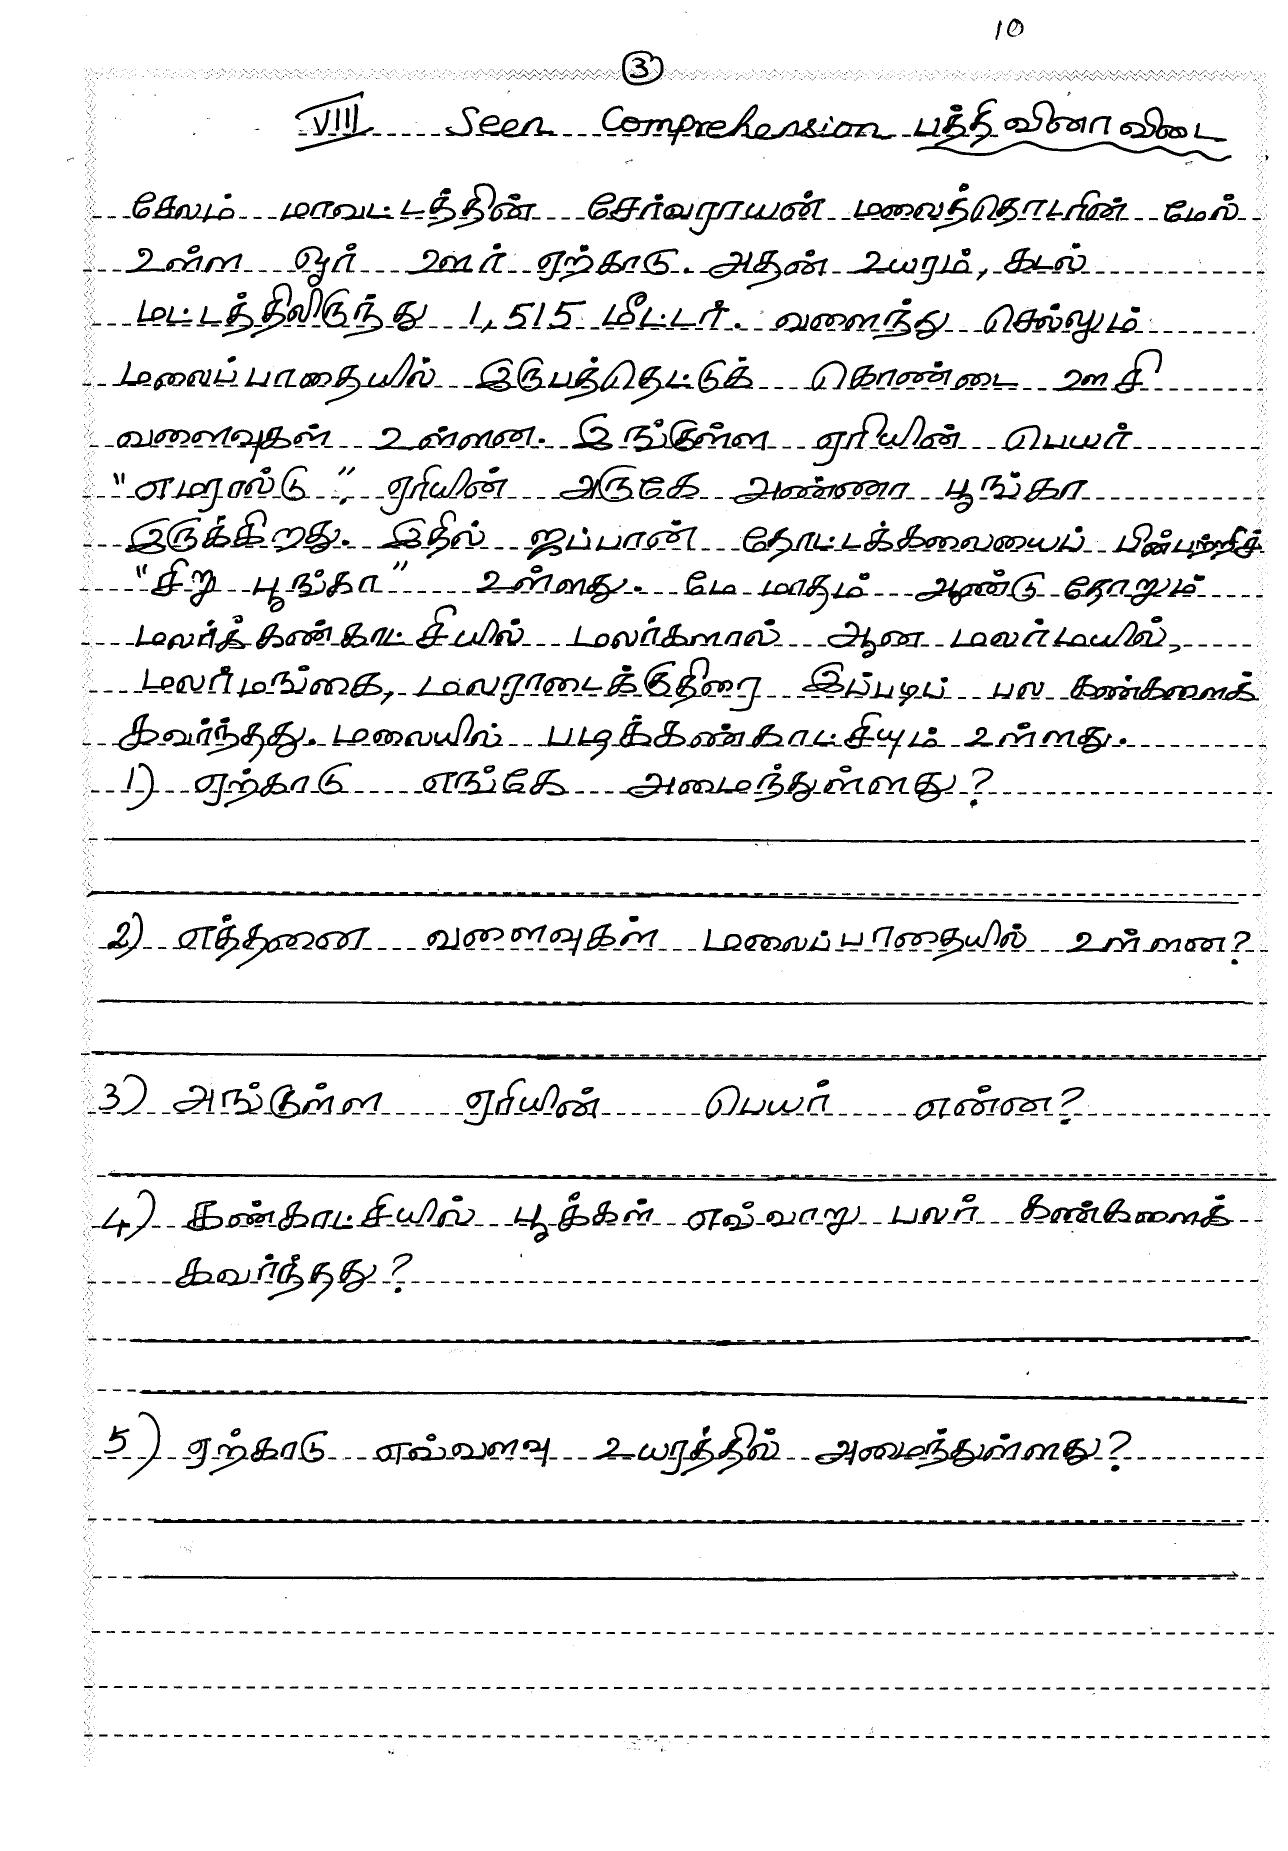 10
3
VIII Seen Comprehension பத்தி வினா விடை
சேலம் மாவட்டத்தின் சேர்வராயன் மலைத்தொடரின் மேல்
உள்ள ஓர் ஊர் ஏற்காடு. அதன் உயரம், கடல்
மட்டத்திலிருந்து 1,515 மீட்டர். வளைந்து செல்லும்
மலைப்பாதையில் இருபத்தெட்டுக் கொண்டை ஊசி
வளைவுகள் உள்ளன. இங்குள்ள ஏரியின் பெயர்
"எமரால்டு", ஏரியின் அருகே அண்ணா பூங்கா
இருக்கிறது. இதில் ஜப்பான் தோட்டக்கலையைப் பின்பற்றிச்
"சிறு பூங்கா" உள்ளது. மே மாதம் ஆண்டு தோறும்
மலர்க்கண்காட்சியில் மலர்களால் ஆன மலர்மயில்,
மலர்மங்கை, மலராடைக்குதிரை இப்படிப் பல கண்களைக்
கவர்ந்தது. மலையில் படிக்கண்காட்சியும் உள்ளது.
1) ஏற்காடு எங்கே அமைந்துள்ளது?
2) எத்தனை வளைவுகள் மலைப்பாதையில் உள்ளன?
3) அங்குள்ள ஏரியின் பெயர் என்ன?
4) கண்காட்சியில் பூக்கள் எவ்வாறு பலர் கண்களைக்
கவர்ந்தது?
5) ஏற்காடு எவ்வளவு உயரத்தில் அமைந்துள்ளது?